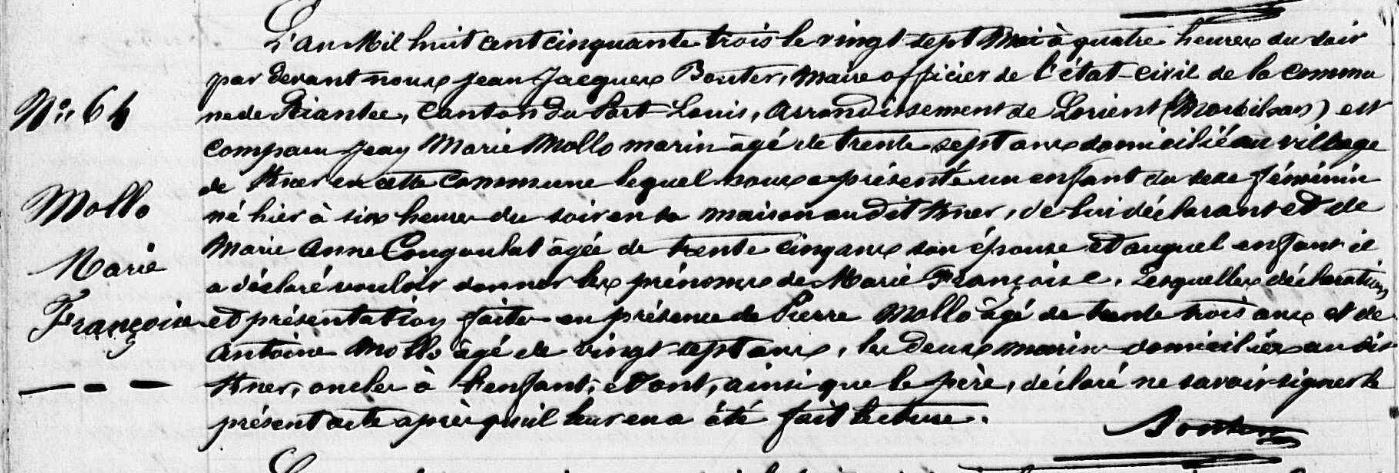 L'an Mil huit cent cinquante trois le vingt sept Mai à quatre heures du soir
par devant nous Jean Jacques Bouter, Maire officier de l'état-civil de la commu
ne de Riantec, Canton du Port Louis, Arrondissement de Lorient (Morbihan) est
comparu Jean Marie Mollo marin âgé de trente sept ans domicilié au village
de Kner en cette commune lequel nous a présenté un enfant du sexe féminin
né hier à six heures du soir en sa maison au dit Kner, de lui déclarant et de
Marie Anne Congoulat âgée de trente cinq ans son épouse et auquel enfant il
a déclaré vouloir donner les prénoms de Marie Françoise. Lesquelles déclaration
et présentation faites en présence de Pierre Mollo âgé de trente trois ans et de
Antoine Mollo âgé de vingt sept ans, les deux marin domiciliés au dit
Kner, oncles à l'enfant, et ont, ainsi que le père, déclaré ne savoir signer le
présent acte après qu'il leur en a été fait lecture.
Nº 64
Mollo
Marie
Françoise